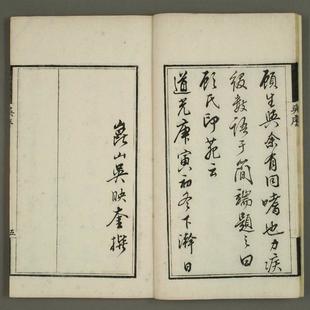 顧生與余有同嗜也力疾
綴數語于簡端題之曰
顧氏印苑云
道光庚寅初冬下澣日
崑山吳映奎撰
五